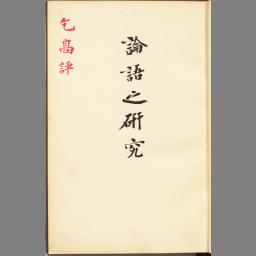 論語之研究
乞高評